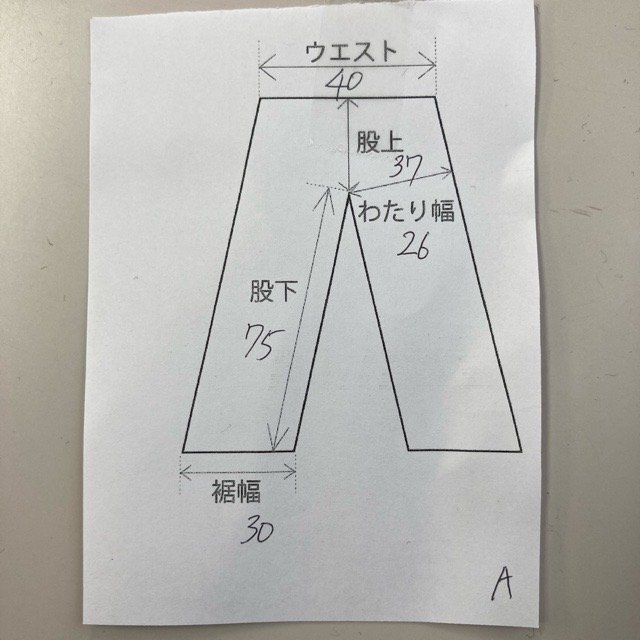 ウエスト
40
股上
37
わたり幅
26
股下
75
裾幅
30
A